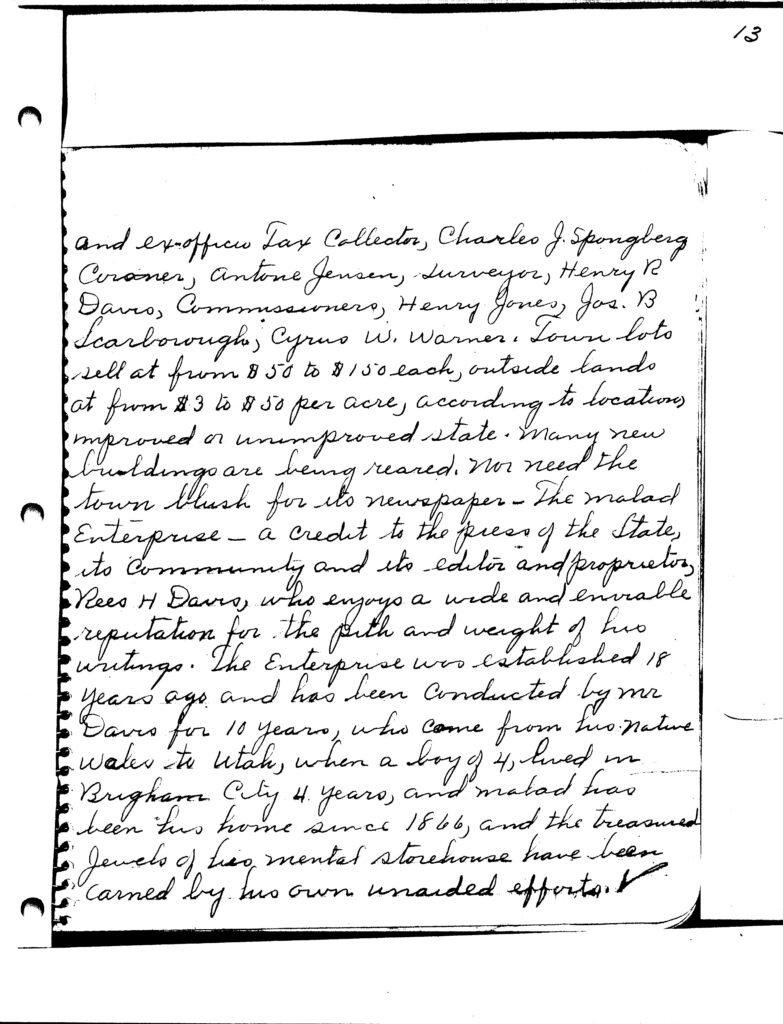 13
and ex-officio Tax Collector, Charles J. Spongberg
Coroner, Antone Jensen, Surveyor, Henry R
Davis, Commissioners, Henry Jones, Jos. B
Scarborough, Cyrus W. Warner. Town lots
sell at from $50 to $150 each, outside lands
at from $3 to $50 per acre, according to location,
improved or unimproved state. Many new
buildings are being reared. Nor need the
town blush for its newspaper - The Malad
Enterprise - a credit to the press of the State,
its Community and its editor and proprietor,
Rees H Davis, who enjoys a wide and enviable
reputation for the pith and weight of his
writings. The Enterprise was established 18
years ago and has been conducted by Mr
Davis for 10 years, who came from his native
Wales to Utah, when a boy of 4, lived in
Brigham City 4 years, and Malad has
been his home since 1866, and the treasured
Jewels of his mental storehouse have been
earned by his own unaided efforts. ✓